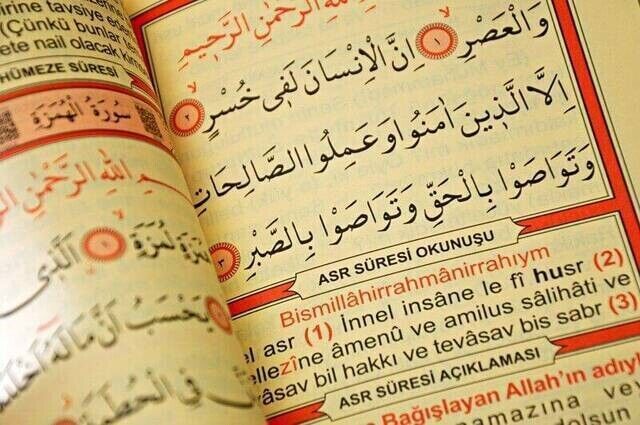 irine tavsiye eden
(Çünkü bunlar
ete nail olacak
HÜMEZE SÛRESİ
سُورَةُ الْهُمَزَةِ
اللّٰهِ الرَّحْمٰنِ الرَّحِيمِ
لُمَزَةٍ ١ اَلَّذِى
يَحْسَبُ اَنَّ مَالَهُٓ
فِى الْحُطَمَةِ
اللّٰهِ الرَّحْمٰنِ الرَّحِيمِ
وَالْعَصْرِ ١ اِنَّ الْاِنْسَانَ لَفِى خُسْرٍ ٢
اِلَّا الَّذِينَ اٰمَنُوا وَعَمِلُوا الصَّالِحَاتِ
وَتَوَاصَوْا بِالْحَقِّ وَتَوَاصَوْا بِالصَّبْرِ ٣
ASR SÛRESİ OKUNUŞU
Bismillâhirrahmânirrahıym
el asr (1) İnnel insâne le fî husr (2)
ellezîne âmenû ve amilus sâlihâti ve
vâsav bil hakkı ve tevâsav bis sabr (3)
ASR SÛRESİ AÇIKLAMASI
Bağışlayan Allah'ın adıyla
namazına ve
dolsun